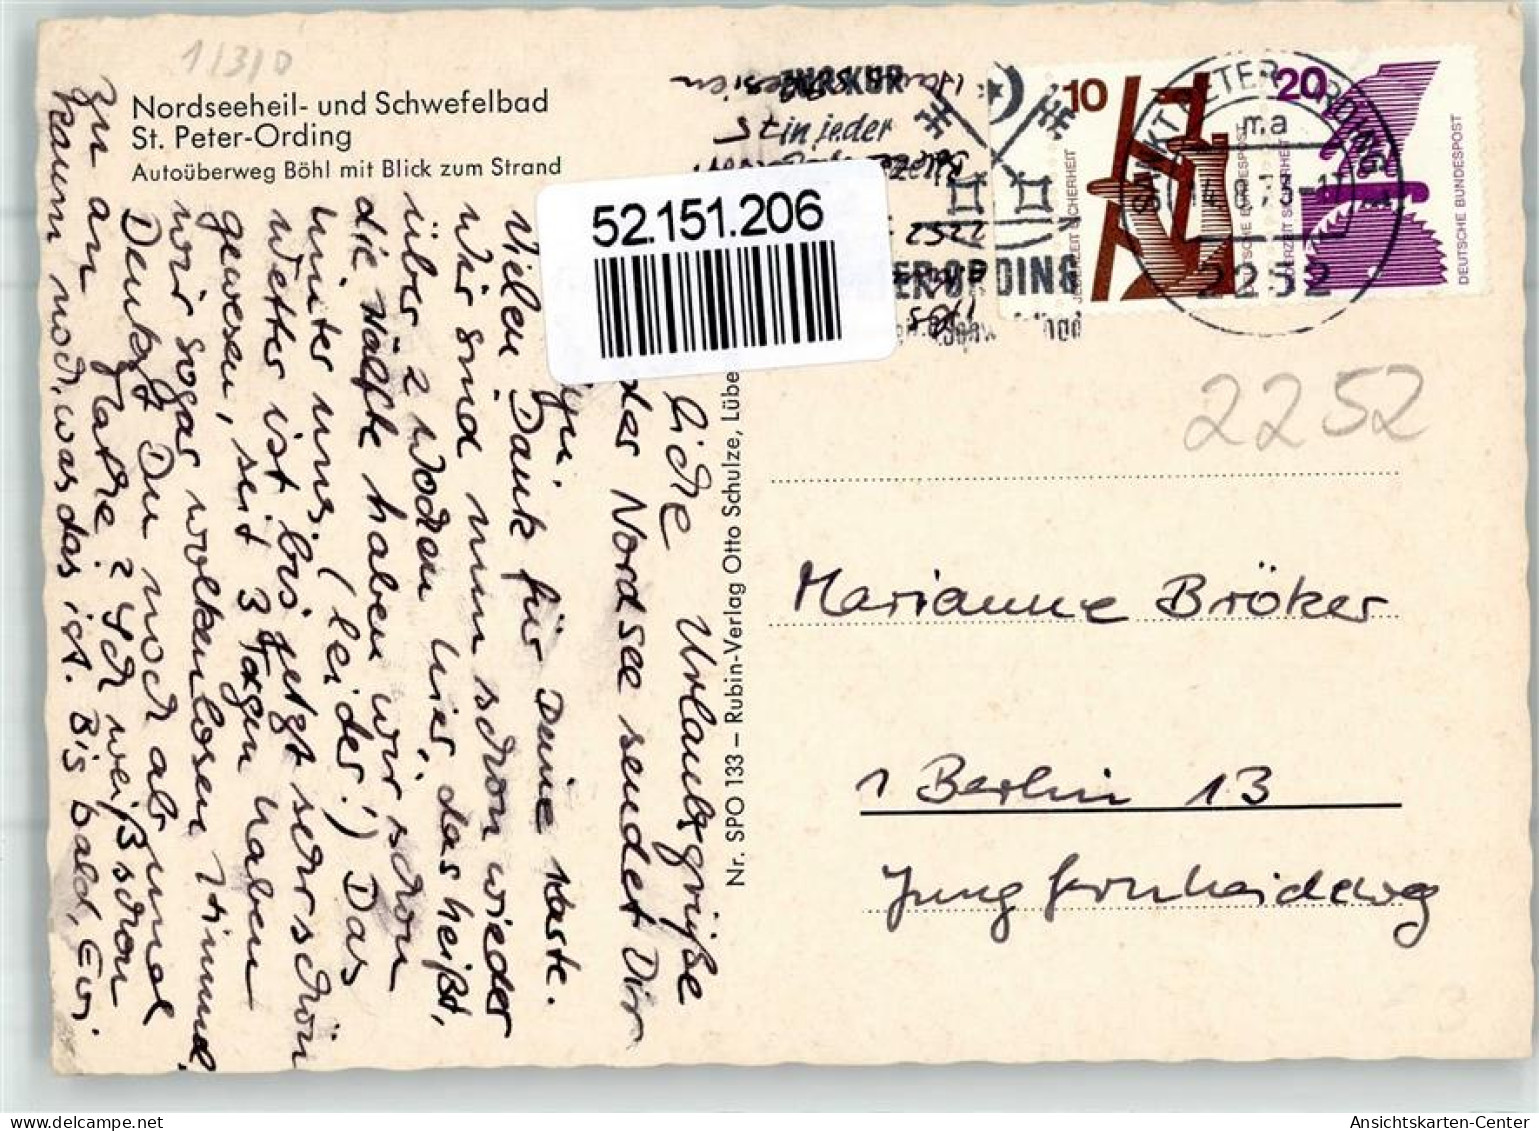 1/3/D
Nordseeheil- und Schwefelbad
St. Peter-Ording
Autoüberweg Böhl mit Blick zum Strand
52.151.206
in jeder
2252
10
20
JEDERZEIT SICHERHEIT
DEUTSCHE BUNDESPOST
JEDERZEIT SICHERHEIT
DEUTSCHE BUNDESPOST
SANKT PETER-ORDING
ma
2252
2252
Nr. SPO 133 – Rubin-Verlag Otto Schulze, Lübe
Marianne Bröker
1 Berlin 13
Jungfernheideweg
liche Urlaubsgrüße
der Nordsee sendet Dir
Vielen Dank für Deine Karte.
Wir sind nun schon wieder
über 2 Wochen hier, das heißt,
die Hälfte haben wir schon
hinter uns. (leider!) Das
Wetter ist bis jetzt sehr schön
gewesen, seit 3 Tagen haben
wir sogar wolkenlosen Himmel
Denkst Du noch ab und
zu an Mathe? Ich weiß schon
kaum noch, was das ist. Bis bald,
Ansichtskarten-Center